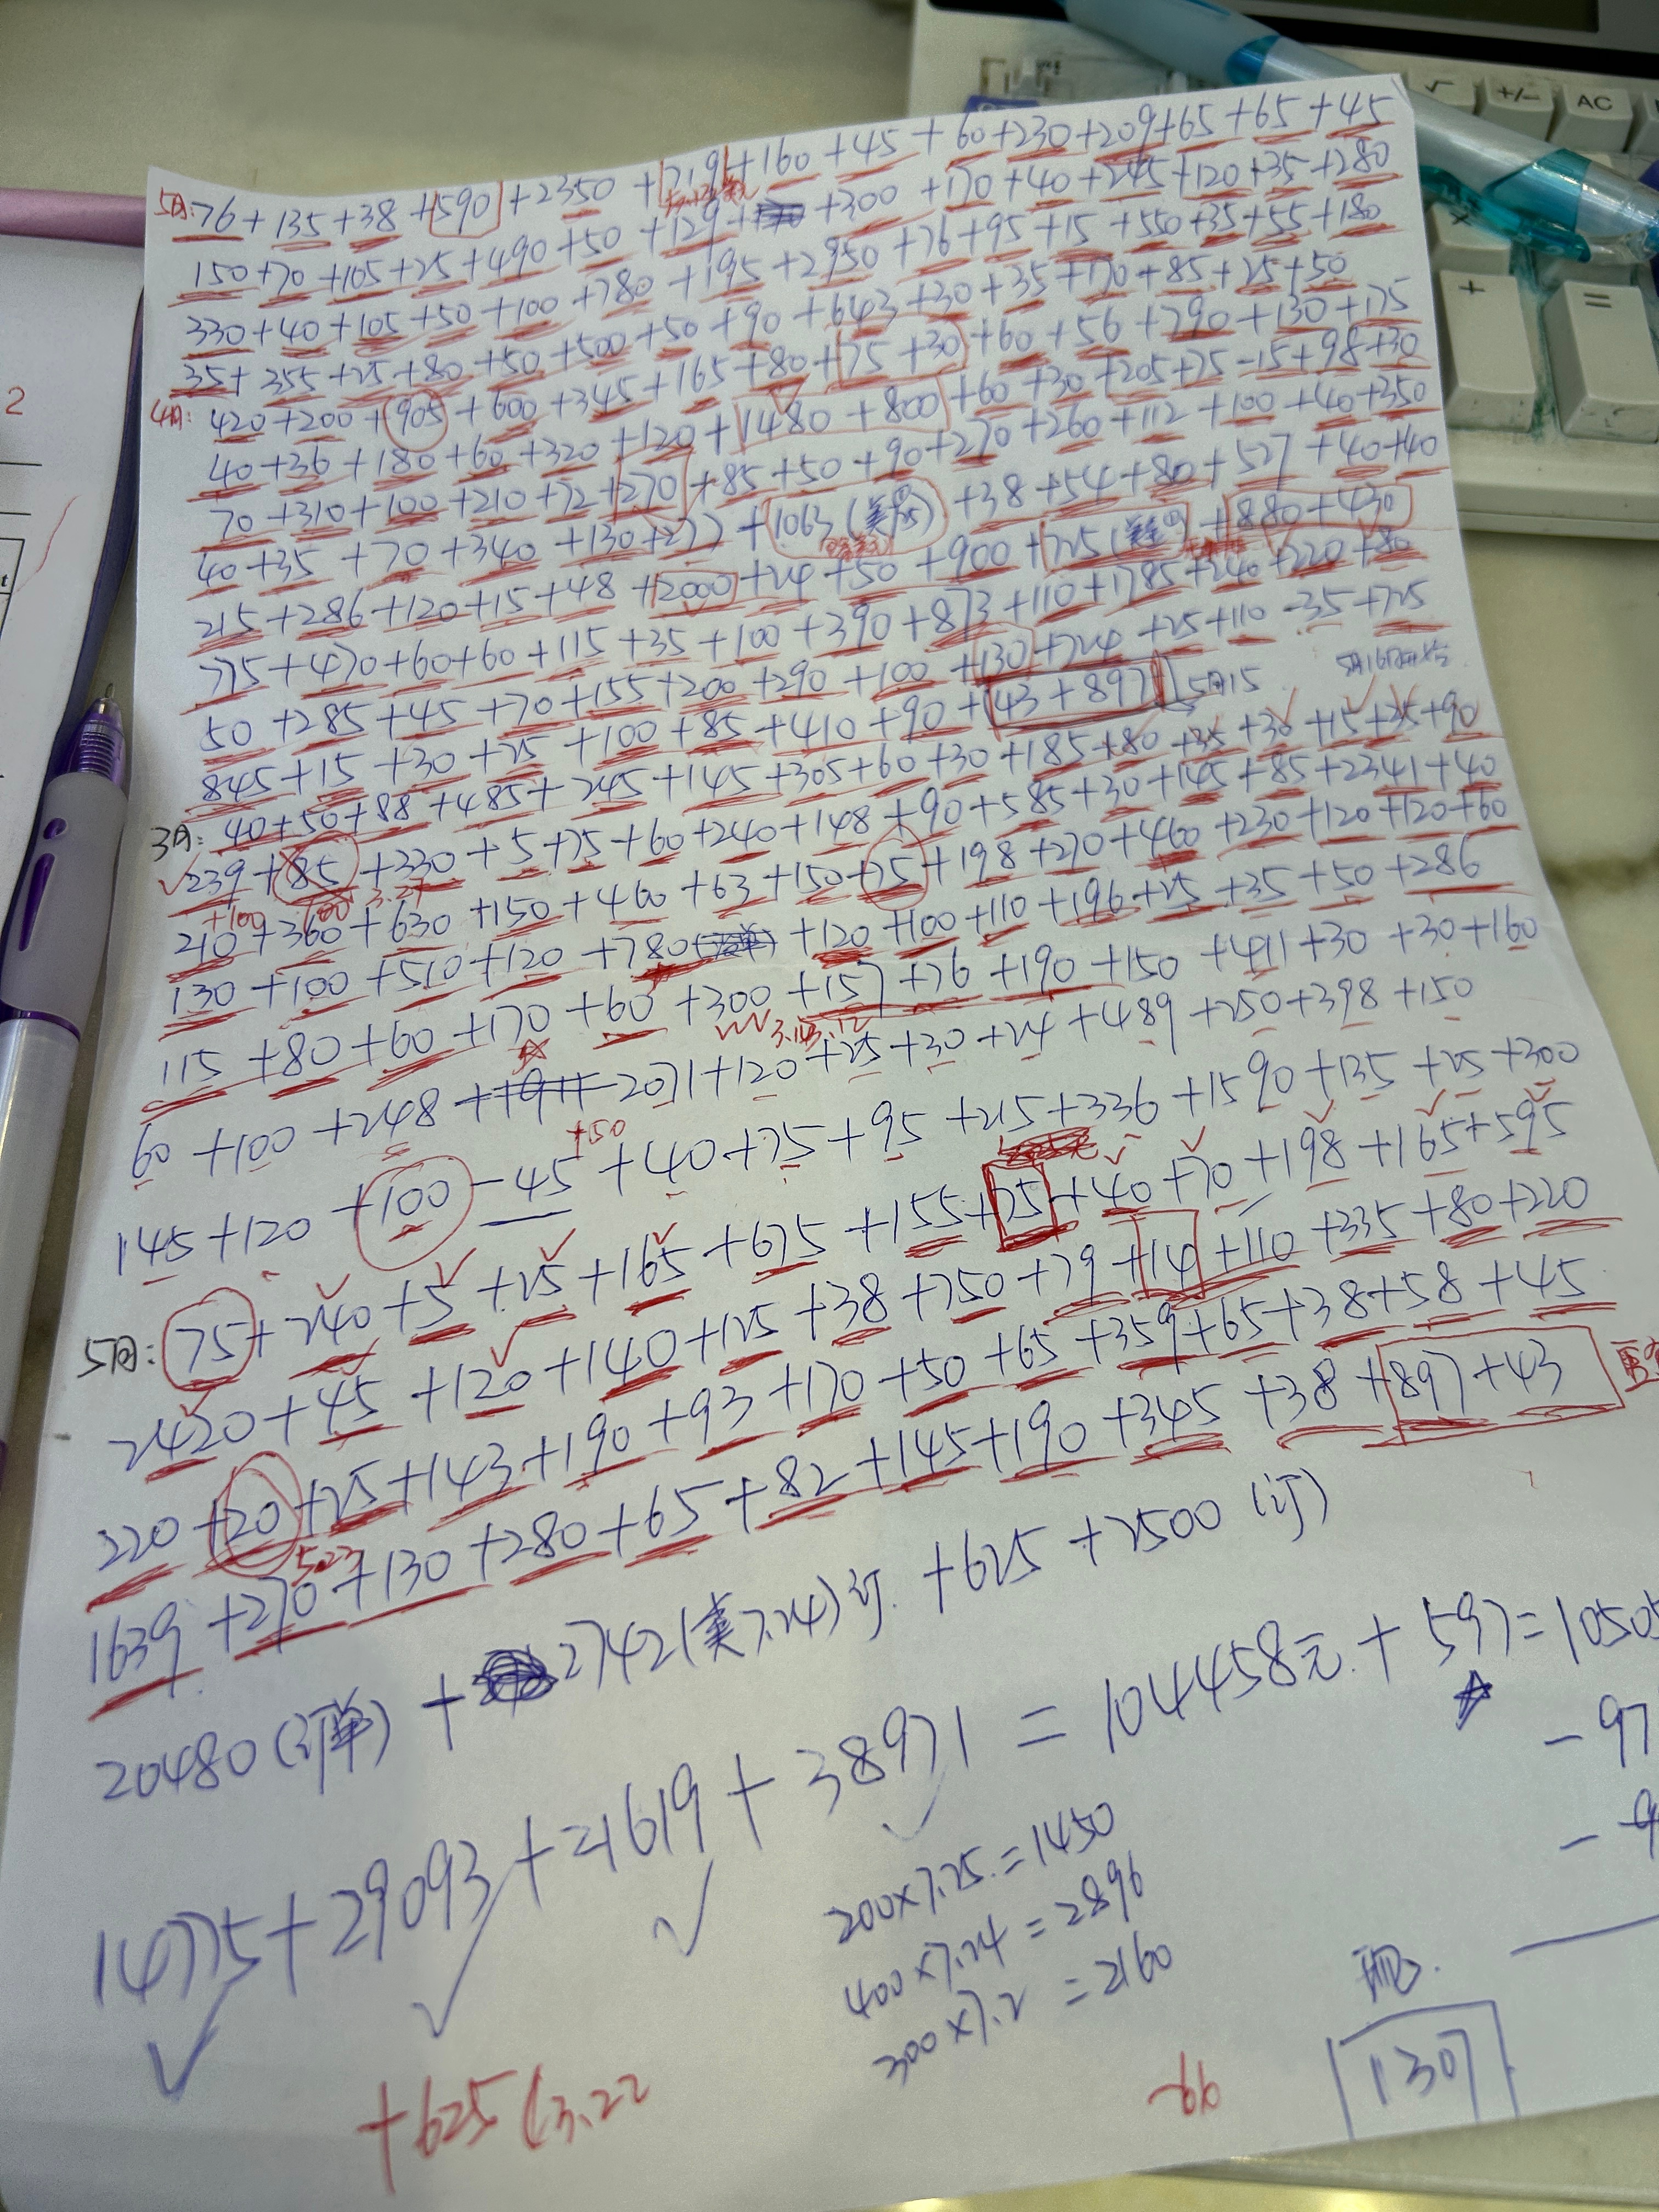 √ +/- AC
× + =
2
5月: 76+135+38+590+2350+719+160+45+60+230+209+65+65+45
150+70+105+25+490+50+129+300+170+40+245+120+35+280
330+40+105+50+100+780+195+2950+76+95+15+550+35+55+180
35+355+25+80+50+500+50+90+643+30+35+170+85+25+50
4月: 420+200+905+600+345+165+80+75+30+60+56+790+130+175
40+36+180+60+320+120+1480+800+60+30+205+75-15+98+30
70+310+100+210+72+270+85+50+90+270+260+112+100+40+350
40+35+70+340+130+277+1063(美金)+38+54+80+527+40+40
215+286+120+15+48+2000+24+50+900+725(美金)+880+430
775+470+60+60+115+35+100+390+873+110+1785+240+220+80
50+285+45+70+155+200+290+100+130+724+25+110-35+725
845+15+30+25+100+85+410+90+43+897 5月15
3月: 40+50+88+485+245+145+305+60+30+185+80+35+30+15+25+90
239+85+330+5+75+60+240+148+90+585+30+145+85+2341+40
+100 100 3.27
210+360+630+150+460+63+150+75+198+270+460+230+120+120+60
130+100+510+120+780+120+100+110+196+25+35+50+286
115+80+60+170+60+300+157+76+190+150+411+30+30+160
3.14 3.12
60+100+248+1911 2071+120+25+30+24+489+250+398+150
+50
145+120+100-45+40+75+95+215+336+1590+135+25+300
5月: 75+240+5+25+165+675+155+75+40+70+198+165+595
2420+45+120+140+125+38+750+79+14+110+335+80+220
220+20+25+143+190+93+170+50+65+359+65+38+58+45
5.23
1639+270+130+280+65+82+145+190+345+38+897+43
20480(订单)+27421(美7.24)订.+625+2500(订)
14775+29093+21619+38971=104458元.+597=10505
-97
200×7.25.=1450
400×7.24=2896
300×7.2=2160
+625(3.22
-66
1307